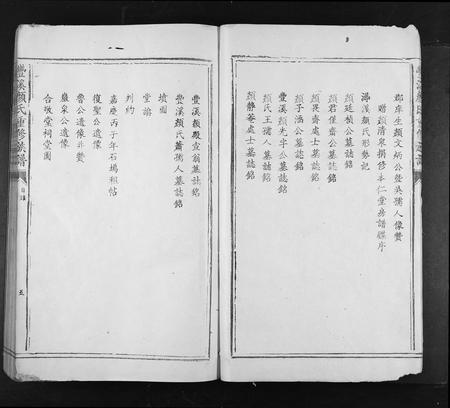 郡庠生顏文炳公暨吳孺人像贊
贈顏清泉捐修本仁堂房譜牒序
潯溪顏氏形勢記
顏廷楨公墓誌銘
顏君僅齋公墓誌銘
顏畏齋處士墓誌銘
顏子涵公墓誌銘
豐溪顏先字公墓誌銘
顏氏王孺人墓誌銘
顏靜菴處士墓誌銘
豐溪顏毅菴翁墓誌銘
豐溪顏氏蕭孺人墓誌銘
墳圖
堂識
判約
嘉慶丙子年石塲租帖
復聖公遺像
魯公遺像并贊
嚴泉公遺像
合敬堂祠堂圖
豐溪顏氏重修族譜
目錄
五